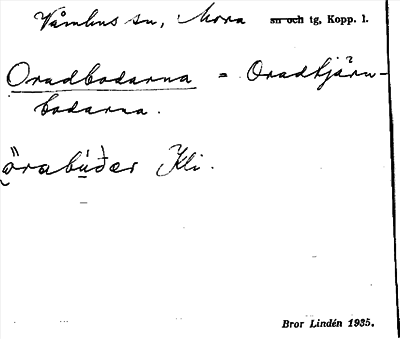 Våmhus sn, Mora sn och tg, Kopp. l.
Oradbodarna = Oradtjärn-
bodarna.
örabúðer Kli.
Bror Lindén 1935.